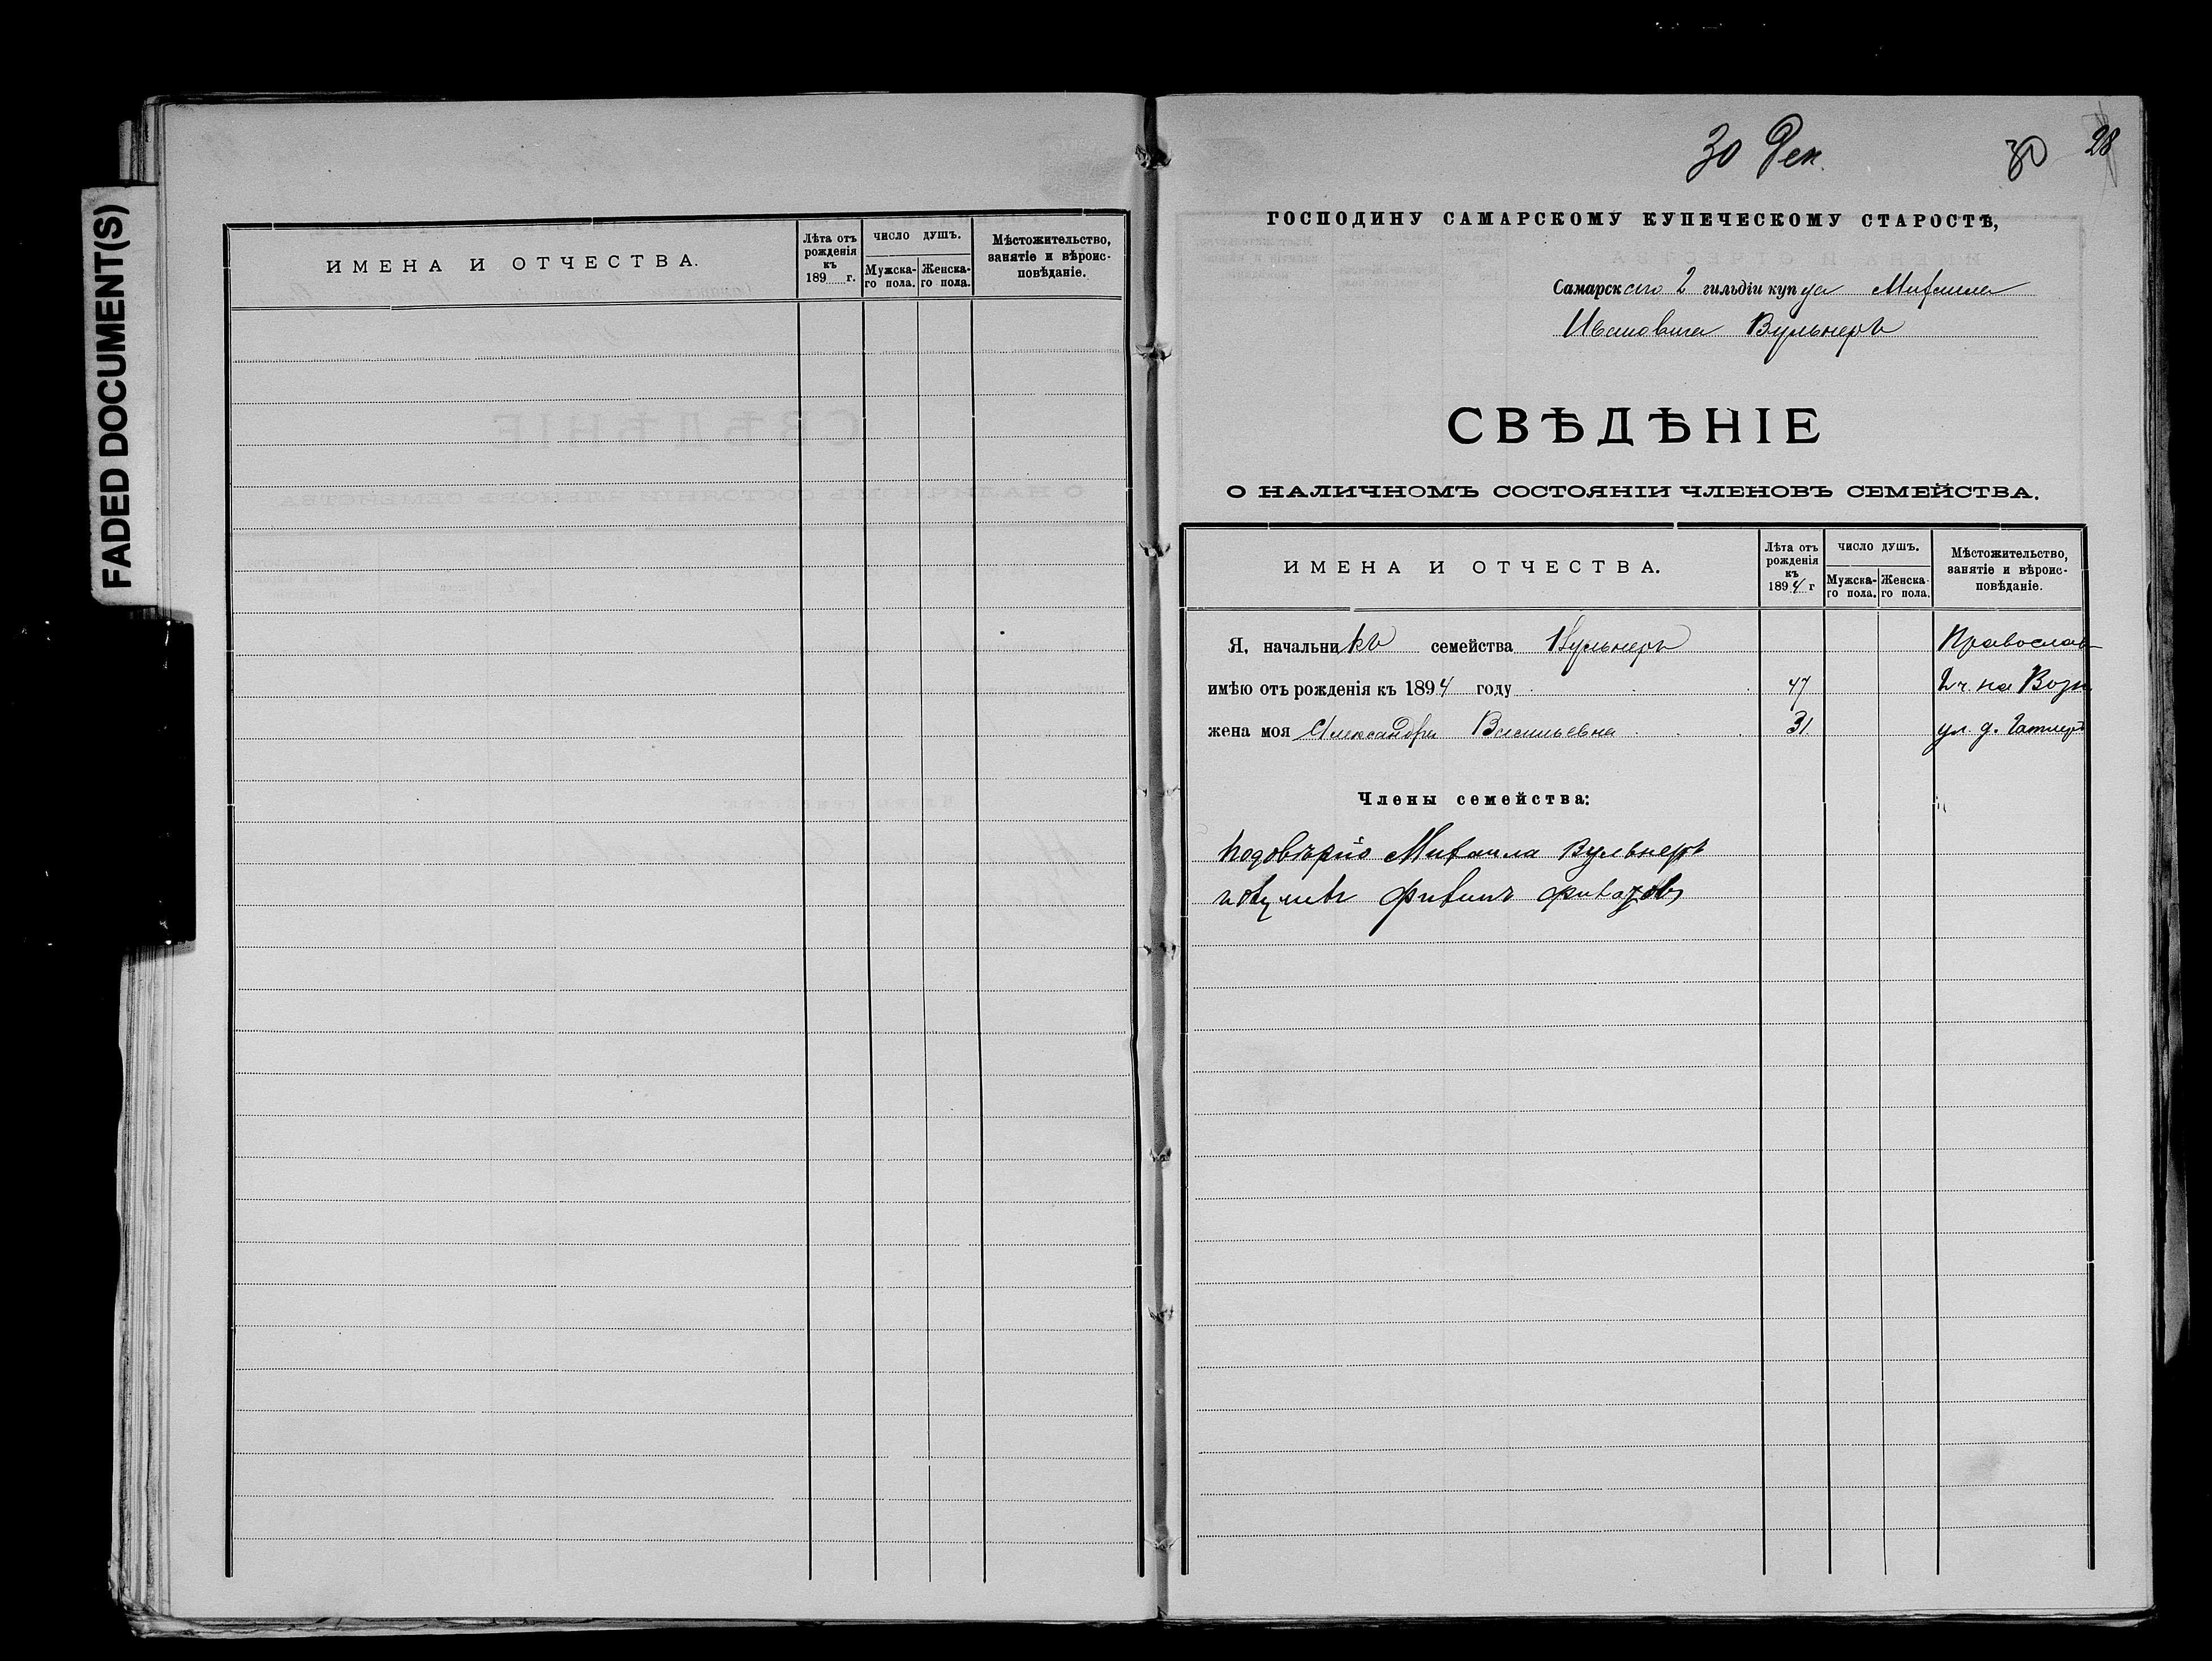 FADED DOCUMENT(S)
ИМЕНА И ОТЧЕСТВА.
Лѣта отъ рожденія къ 189 г.
ЧИСЛО ДУШЪ.
Мужска-го пола.
Женска-го пола.
Мѣстожительство, занятіе и вѣроис-повѣданіе.
30 Дек.
30
28
ГОСПОДИНУ САМАРСКОМУ КУПЕЧЕСКОМУ СТАРОСТѢ,
Самарскаго 2 гильдіи купца Михаила
Ивановича Вульнеръ
СВѢДѢНІЕ
О НАЛИЧНОМЪ СОСТОЯНІИ ЧЛЕНОВЪ СЕМЕЙСТВА.
ИМЕНА И ОТЧЕСТВА.
Лѣта отъ рожденія къ 1894 г
ЧИСЛО ДУШЪ.
Мужска-го пола.
Женска-го пола.
Мѣстожительство, занятіе и вѣроис-повѣданіе.
Я, начальникъ семейства Вульнеръ Православ
имѣю отъ рожденія къ 1894 году 47 2 ч. на Возн.
жена моя Александра Васильевна 31. ул. д.
Члены семейства:
подовѣрію Михаила Вульнеръ